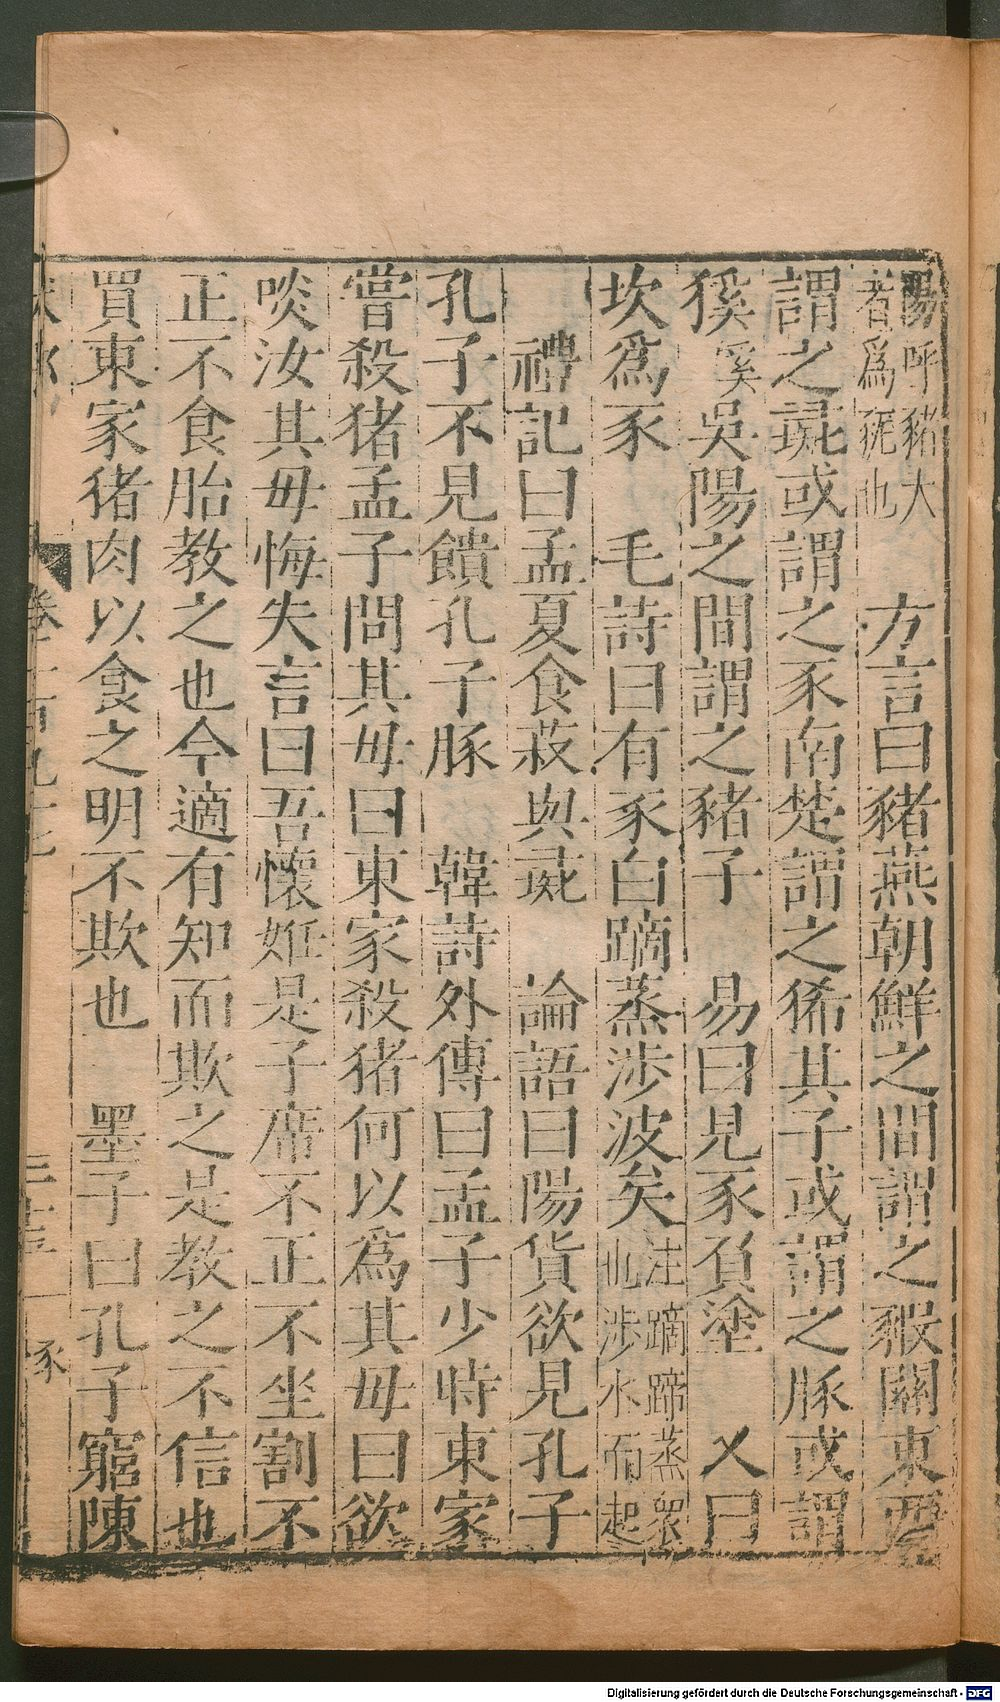 陽呼豬大
者爲豟也
方言曰豬燕朝鮮之間謂之豭關東西
謂之彘或謂之豕南楚謂之狶其子或謂之豚或謂
豯奚吳陽之間謂之豬子　易曰見豕負塗　又曰
坎爲豕　毛詩曰有豕白蹢蒸涉波矣
注蹢蹄蒸衆
也涉水而起
禮記曰孟夏食菽與彘　論語曰陽貨欲見孔子
孔子不見饋孔子豚　韓詩外傳曰孟子少時東家
嘗殺猪孟子問其母曰東家殺猪何以為其母曰欲
啖汝其母悔失言曰吾懷姙是子席不正不坐割不
正不食胎教之也今適有知而欺之是教之不信也
買東家猪肉以食之明不欺也　墨子曰孔子窮陳
豕
Digitalisierung gefördert durch die Deutsche Forschungsgemeinschaft - DFG